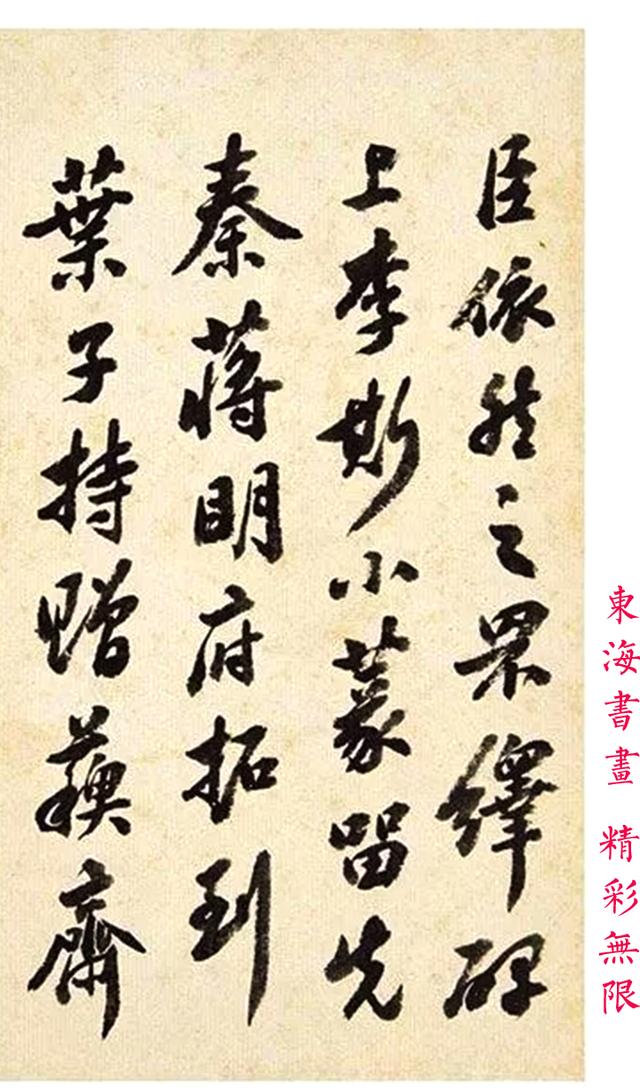 臣依然之罘繹碑
上李斯小篆留先
秦蔣明府拓到
葉子持贈蘓齋
東海書畫 精彩無限